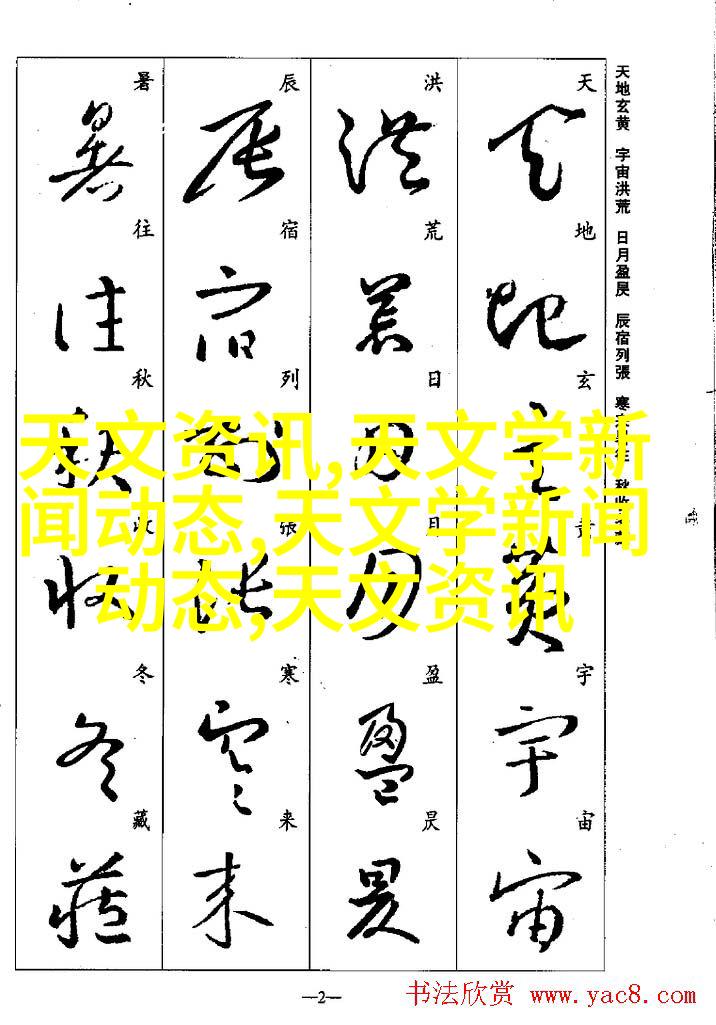 天地玄黄 宇宙洪荒 日月盈昃 辰宿列張 寒
天地玄黄宇宙
洪荒日月盈昃
辰宿列張寒来
暑往秋收冬藏
天文资讯,天文学新
闻动态,天文学新闻
动态,天文资讯
—2—
书法欣赏 www.yac8.com